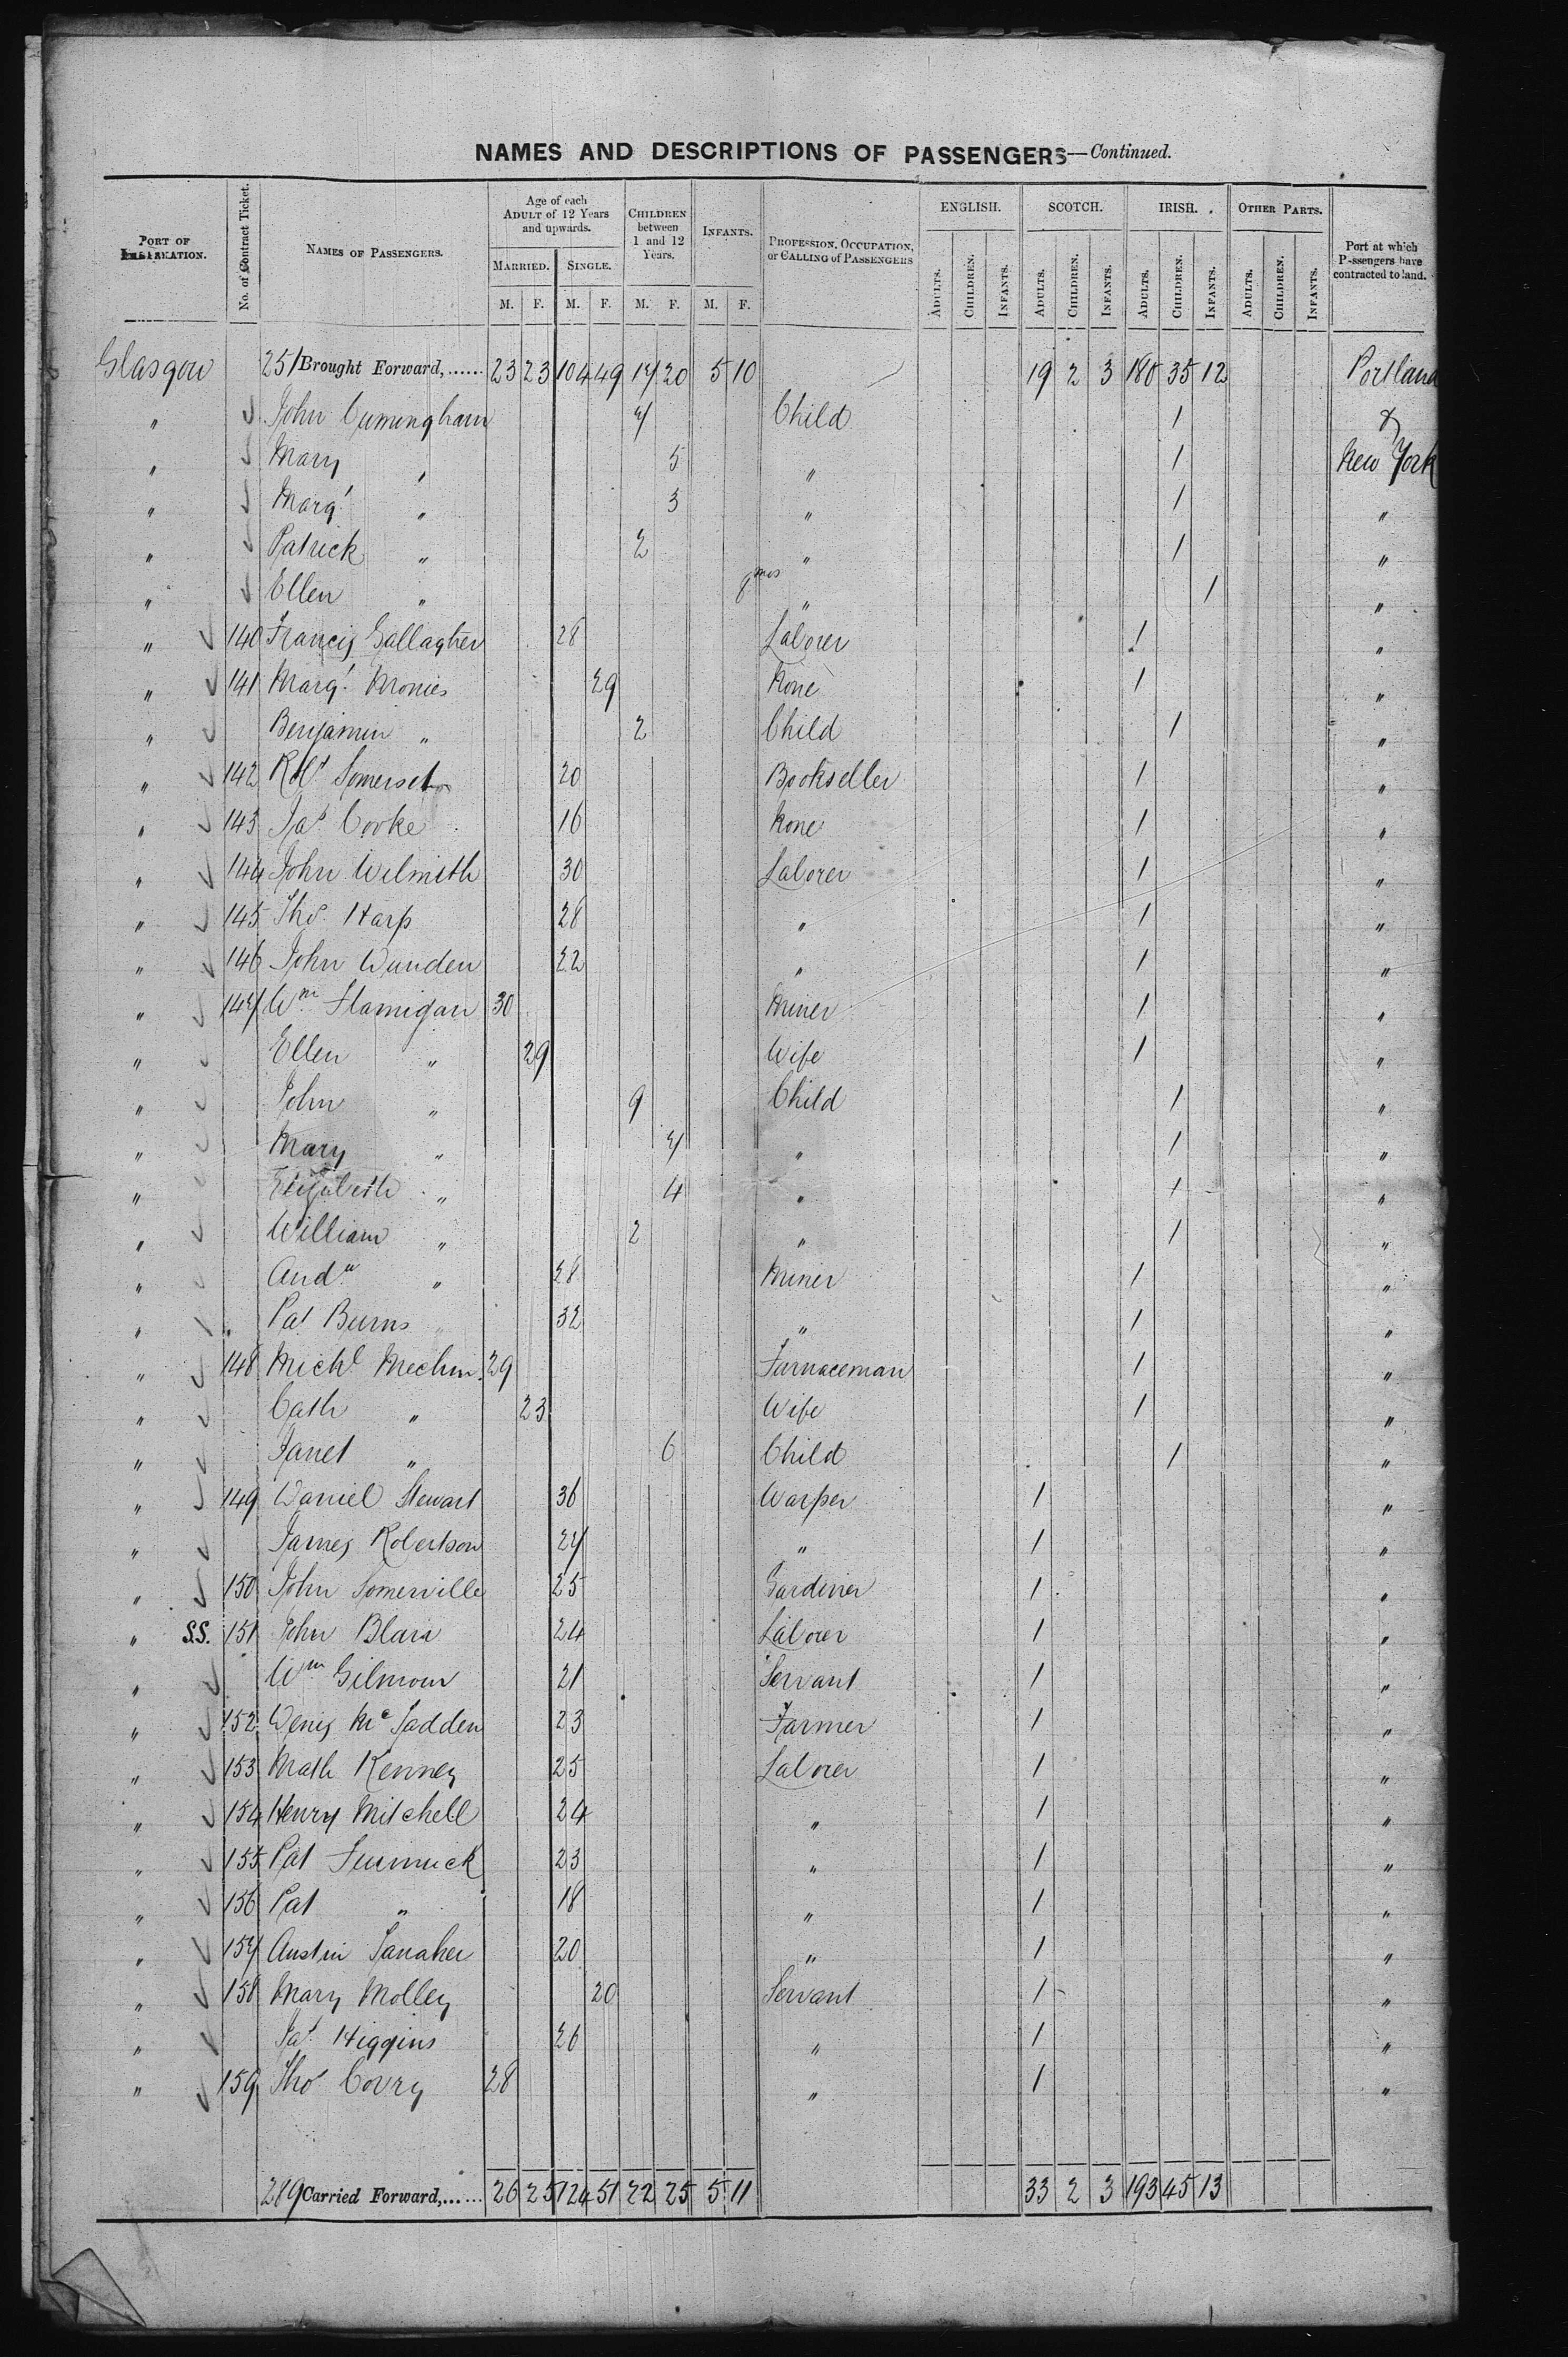 NAMES AND DESCRIPTIONS OF PASSENGERS—Continued.
PORT OF EMBARKATION. No. of Contract Ticket. NAMES OF PASSENGERS. Age of each ADULT of 12 Years and upwards. MARRIED. M. F. SINGLE. M. F. CHILDREN between 1 and 12 Years. M. F. INFANTS. M. F. PROFESSION, OCCUPATION, or CALLING of PASSENGERS ENGLISH. ADULTS. CHILDREN. INFANTS. SCOTCH. ADULTS. CHILDREN. INFANTS. IRISH. ADULTS. CHILDREN. INFANTS. OTHER PARTS. ADULTS. CHILDREN. INFANTS. Port at which Passengers have contracted to land.
Glasgow 251 Brought Forward,...... 23 23 104 49 17 20 5 10 19 2 3 180 35 12 Portland
" John Cunningham 7 Child 1 &
" Mary " 5 " 1 New York
" Margt " 3 " 1 "
" Patrick " 2 " 1 "
" Ellen " 9 mos " 1 "
" 140 Francis Gallagher 28 Laborer 1 "
" 141 Margt Monies 29 None 1 "
" Benjamin " 2 Child 1 "
" 142 Robt Somerset 20 Bookseller 1 "
" 143 Jas Cooke 16 None 1 "
" 144 John Wilmith 30 Laborer 1 "
" 145 Thos Harp 28 " 1 "
" 146 John Dunden 22 " 1 "
" 147 Wm Flannigan 30 Miner 1 "
" Ellen " 29 Wife 1 "
" John " 9 Child 1 "
" Mary " 7 " 1 "
" Elizabeth " 4 " 1 "
" William " 2 " 1 "
" Andw " 28 Miner 1 "
" Pat Burns 32 " 1 "
" 148 Michl Mechin 29 Furnaceman 1 "
" Cath " 23 Wife 1 "
" Janet " 6 Child 1 "
" 149 Daniel Stewart 36 Warper 1 "
" James Robertson 27 " 1 "
" 150 John Somerville 25 Gardiner 1 "
" S.S. 151 John Blair 24 Laborer 1 "
" Wm Gilmour 21 Servant 1 "
" 152 Denis McFadden 23 Farmer 1 "
" 153 Math Kenney 25 Laborer 1 "
" 154 Henry Mitchell 24 " 1 "
" 155 Pat 23 " 1 "
" 156 Pat " 18 " 1 "
" 157 Austin 20 " 1 "
" 158 Mary Molley 20 Servant 1 "
" Pat Higgins 26 " 1 "
" 159 Thos 28 " 1 "
289 Carried Forward,...... 26 25 124 51 22 25 5 11 33 2 3 193 45 13